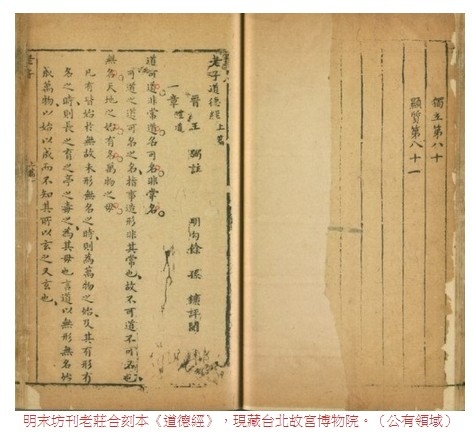 獨立第八十
顯質第八十一
老子道德經上篇
晉 王 弼註 明句餘 孫 鑛評閱
一章 體道
道可道非常道名可名非常名
可道之道可名之名指事造形非其常也故不可道不可名也
無名天地之始有名萬物之母
凡有皆始於無故未形無名之時則為萬物之始及其有形有
名之時則長之育之亭之毒之為其母也言道以無形無名始
成萬物以始以成而不知其所以玄之又玄也
明末坊刊老莊合刻本《道德經》，現藏台北故宮博物院。（公有領域）